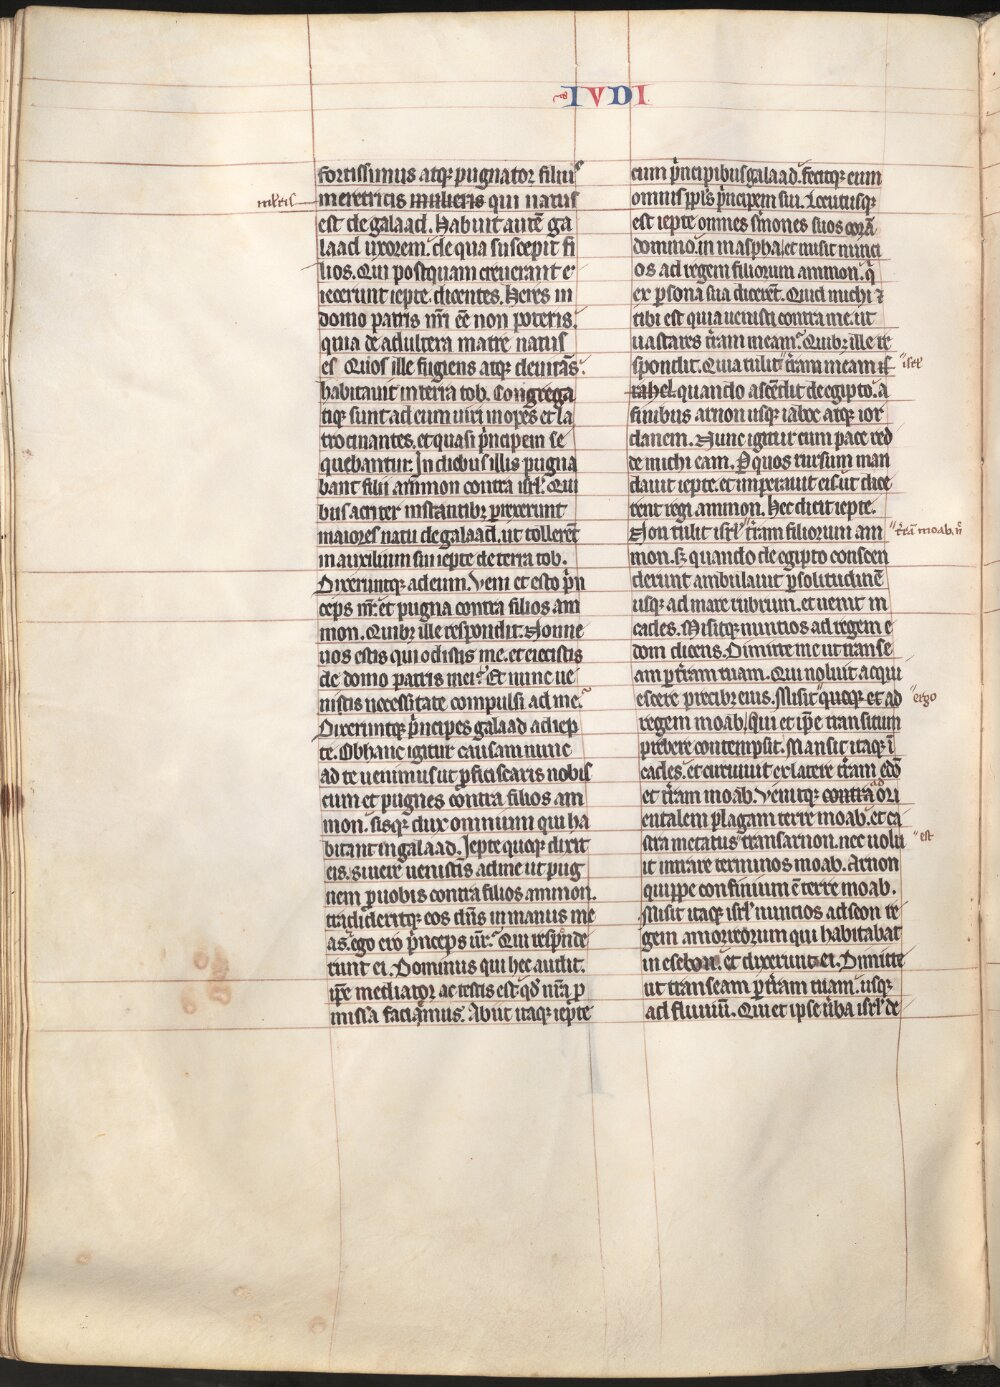 IVDI
fortissimus atq; pugnator filius
mulieris
meretricis mulieris qui natus
est de galaad. Habuit autē ga
laad uxorem. de qua suscepit fi
lios. Qui postquam creuerant e
iecerunt iepte. dicentes. Heres in
domo patris nr̄i eē non poteris.
quia de adultera matre natus
es. Quos ille fugiens atq; deuitās.
habitauit in terra tob. Congrega
tiq; sunt ad eum uiri inopes et la
trocinantes. et quasi p̄ncipem se
quebantur. In diebus illis pugna
bant filii ammon contra isrl̄. Qui
bus acriter instantibꝫ prexerunt
maiores natu de galaad. ut tollerēt
in auxilium sui iepte de terra tob.
Dixeruntq; ad eum. Veni et esto p̄n
ceps nr̄. et pugna contra filios am
mon. Quibꝫ ille respondit. Nonne
uos estis qui odistis me. et eiecistis
de domo patris mei. Et nunc ue
nistis necessitate compulsi ad me.
Dixeruntq; p̄ncipes galaad ad iep
te. Ob hanc igitur causam nunc
ad te uenimus ut ꝓficiscaris nobis
cum et pugnes contra filios am
mon. sisq; dux omnium qui ha
bitant in galaad. Iepte quoq; dixit
eis. Si uere uenistis ad me ut pug
nem ꝓ uobis contra filios ammon.
tradideritq; eos dn̄s in manus me
as. ego ero p̄nceps ur̄. Qui responde
runt ei. Dominus qui hec audit.
ip̄e mediator ac testis est. qd̄ nr̄a ꝓ
missa faciemus. Abiit itaq; iepte
cum p̄ncipibus galaad. fecitq; eum
omnis ppl̄s p̄ncipem sui. Locutusq;
est iepte omnes sermones suos corā
domino in maspha. et misit nunci
os ad regem filiorum ammon. q̄
ex ꝑsona sua dicerēt. Quid michi ⁊
tibi est quia uenisti contra me. ut
uastares t̄ram meam. Quibꝫ ille re
spondit. Quia tulit t̄ram meam is
isrl̄
rahel. quando ascēdit de egipto. a
finibus arnon usq; iaboc atq; ior
danem. Nunc igitur cum pace red
de michi eam. Per quos rursum man
dauit iepte. et imperauit eis ut dice
rent regi ammon. Hec dicit iepte.
Non tulit isrl̄ t̄ram filiorum am
t̄rā moab. n̄
mon. sꝫ quando de egipto conscen
derunt ambulauit ꝑ solitudinē
usq; ad mare rubrum. et uenit in
cades. Misitq; nuntios ad regem e
dom dicens. Dimitte me ut transe
am ꝑ t̄ram tuam. Qui noluit acqui
escere precibꝫ eius. Misit quoq; et ad
ergo
regem moab. Qui et ip̄e transitum
prebere contempsit. Mansit itaq; ī
cades. et circuiuit ex latere t̄ram edō
et t̄ram moab. Venitq; contra ad ori
entalem plagam terre moab. et ca
stra metatus trans arnon. nec uolu
est
it intrare terminos moab. Arnon
quippe confinium ē terre moab.
Misit itaq; isrl̄ nuntios ad seon re
gem amorreorum qui habitabat
in esebon. et dixerunt ei. Dimitte
ut transeam ꝑ t̄ram tuam. usq;
ad fluuiū. Qui et ipse ūba isrl̄ de